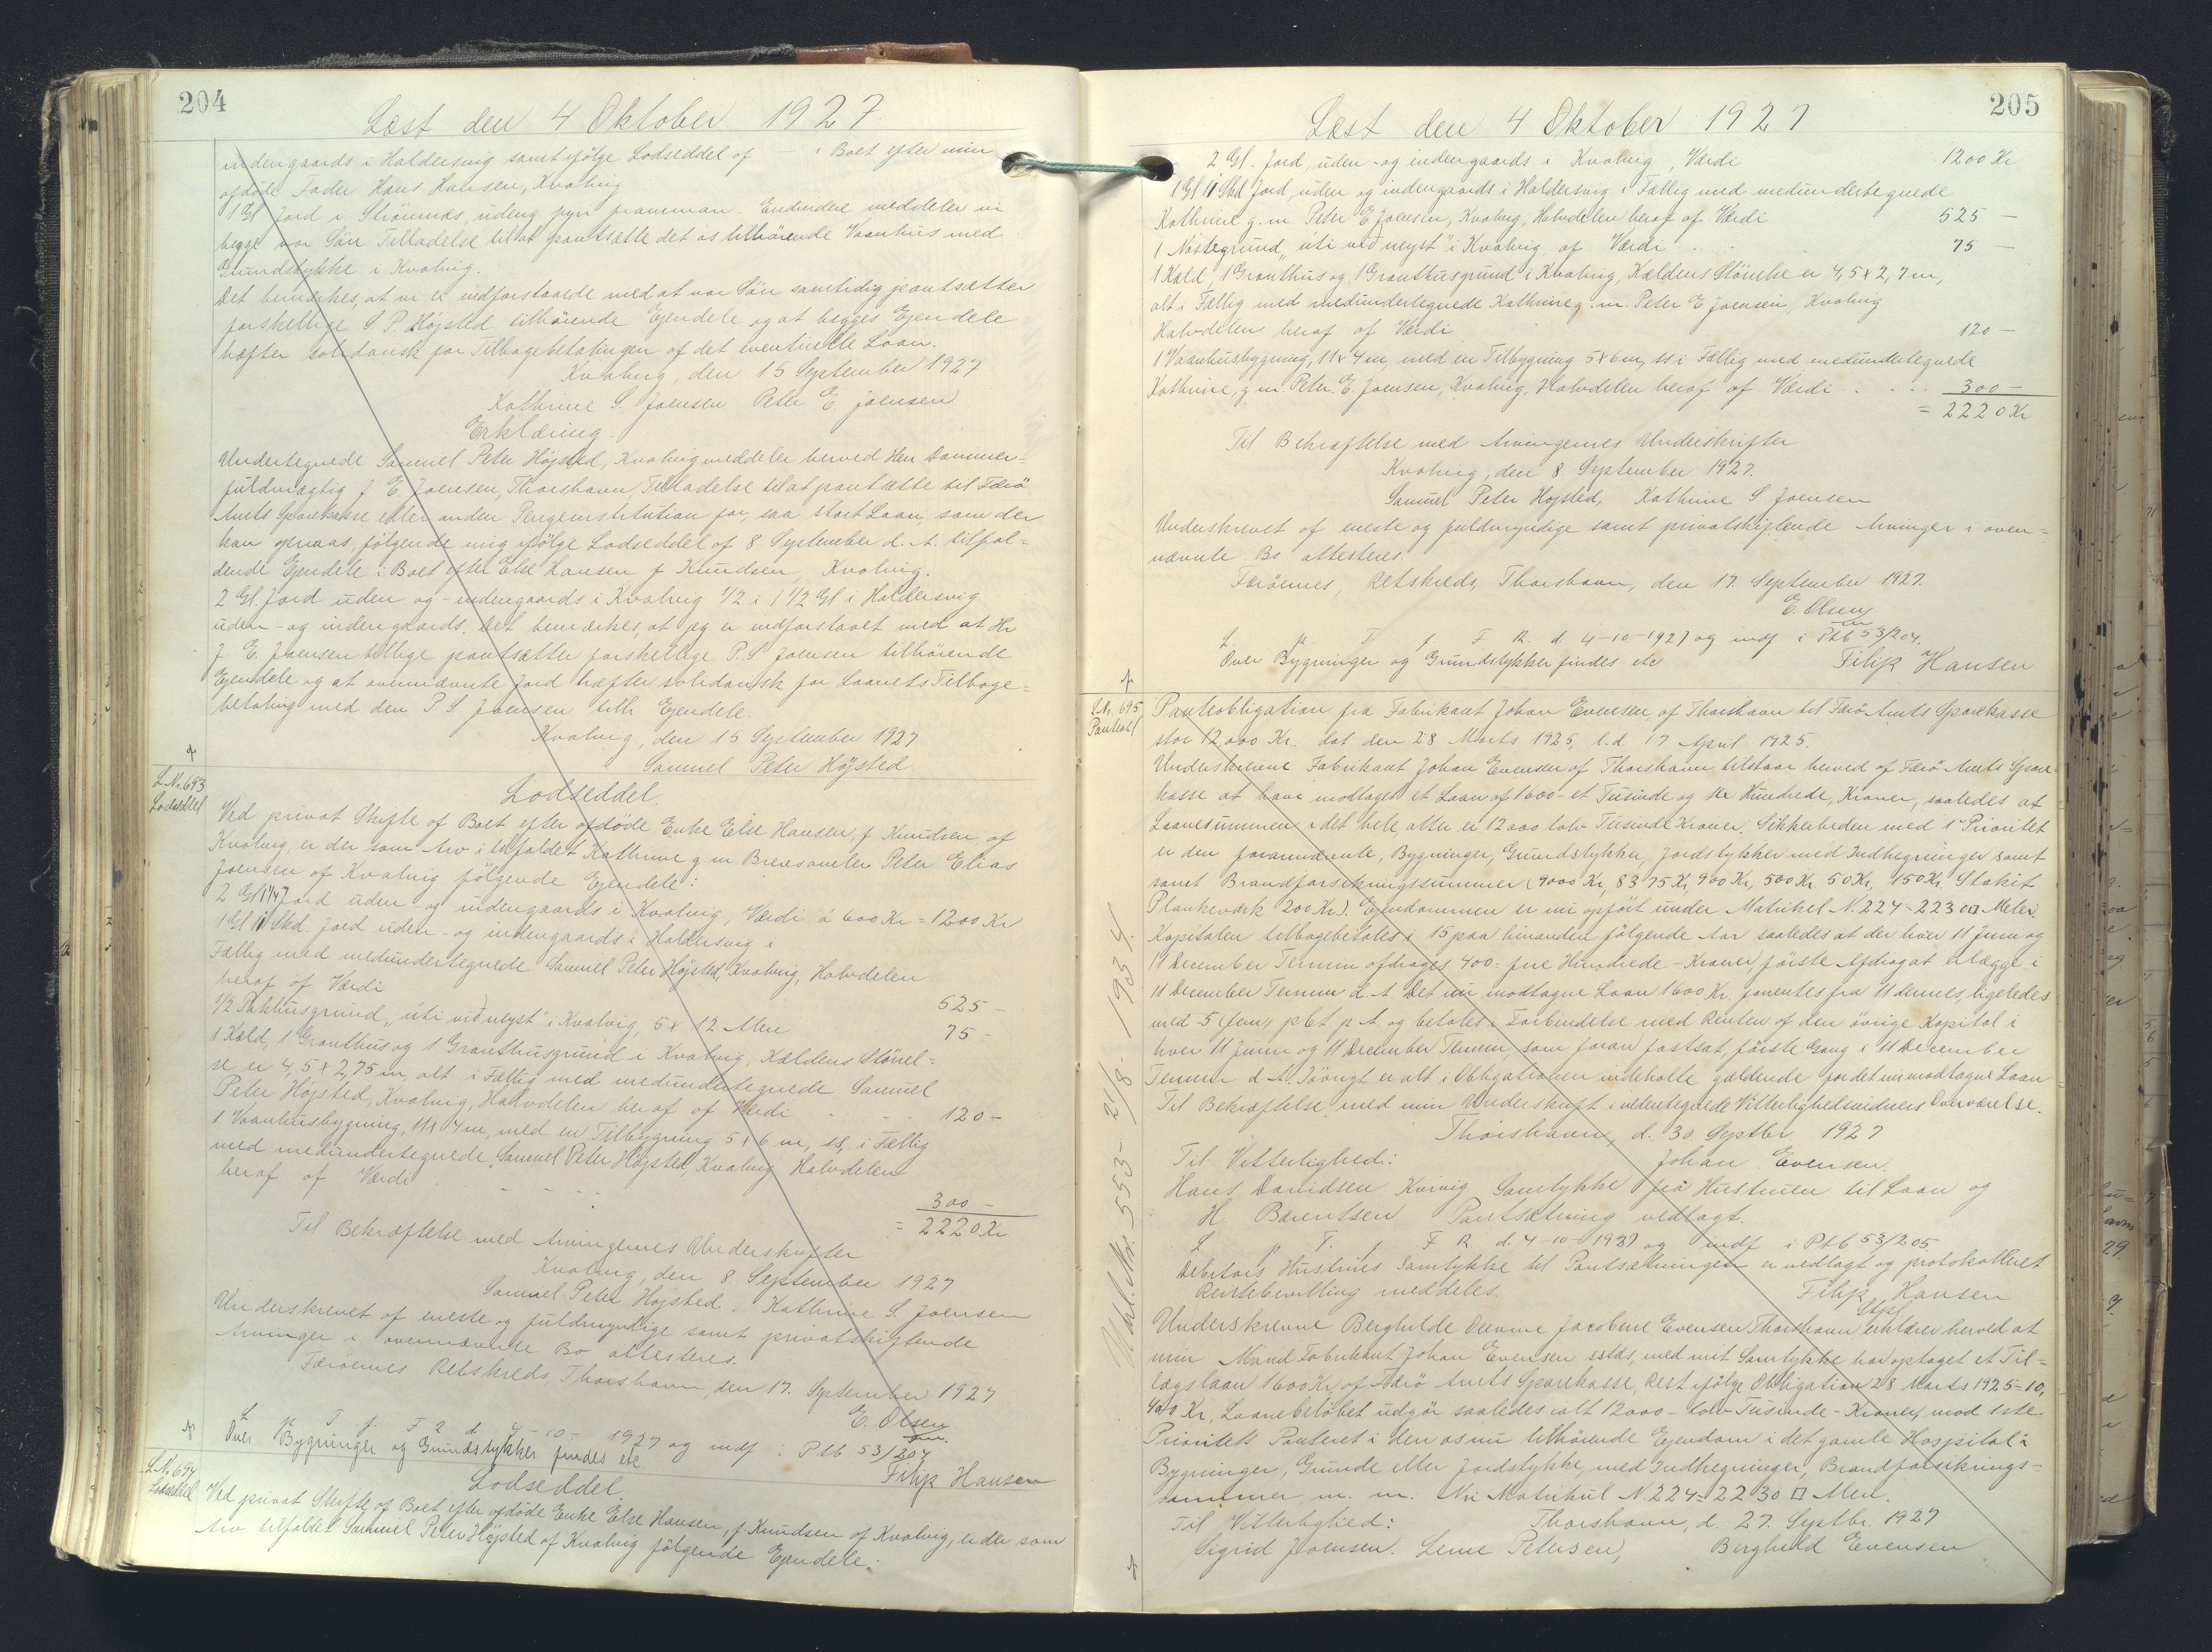 204
Læst den 4 Oktober 1927
indengaards i Haldersvig samt ifölge Lodseddel af — i Boet efter min
afdöde Fader Hans Hansen, Kvalvig
1 Gl Jord i Strömnæs, udeng fyri framman. Endvidere meddeler vi
begge vor Sön Tilladelse til at pantsætte det os tilhörende Vaanhus med
Grundstykke i Kvalvig.
Det bemærkes, at vi er indforstaaede med at vor Sön samtidig pantsætter
forskellige S. P. Höjsted tilhörende Ejendele og at begges Ejendele
hæfter solidarisk for Tilbagebetalingen af det eventuelle Laan.
Kvalvig, den 15 September 1927
Kathrine S. Joensen Peter E. Joensen
Erklæring.
Undertegnede Samuel Peter Höjsted, Kvalvig meddeler herved Herr Dommer=
fuldmægtig J. E. Joensen, Thorshavn, Tilladelse til at pantsætte til Færö
Amts Sparekasse eller anden Pengeinstitution for saa stort Laan, som der
kan opnaas, fölgende mig ifölge Lodseddel af 8 September d. A. tilfal=
dende Ejendele i Boet efter Else Hansen f. Knudsen, Kvalvig.
2 Gl. Jord uden og - indengaards i Kvalvig 1/2 i 1 1/2 Gl i Haldersvig
uden - og indengaards. Det bemærkes, at jeg er indforstaaet med at Hr
J. E. Joensen tillige pantsætter forskellige P. S. Joensen tilhörende
Ejendele og at ovennævnte Jord hæfter solidarisk for Laanets Tilbage=
betaling med den P. S. Joensen tilh. Ejendele.
Kvalvig, den 15 September 1927
Samuel Peter Höjsted
L. Nr. 693
Lodseddel
Lodseddel.
Ved privat Skifte af Boet efter afdöde Enke Else Hansen, f. Knudsen af
Kvalvig, er der som Arv i tilfaldet Kathrine g. m. Peter Elias
Joensen af Kvalvig fölgende Ejendele:
2 Gl Jord uden - og indengaards i Kvalvig, Værdi á 600 Kr = 1200 Kr
1 Gl 11 Skd. Jord uden - og indengaards i Haldersvig i
Fællig med medundertegnede Samuel Peter Höjsted, Kvalvig, Halvdelen
heraf af Værdi 525 -
1/2 Pakhusgrund „úti við neyst" i Kvalvig, 5 x 12 Alen 75 -
1 Kæld, 1 Grauthus og 1 Grauthusgrund i Kvalvig, Kældens Störrel=
se er 4,5 x 2,75 m, alt i Fællig med medundertegnede Samuel
Peter Höjsted, Kvalvig, Halvdelen heraf af Værdi 120 -
1 Vaanhusbygning, 11 x 4 m, med en Tilbygning 5 x 6 m, ss, i Fællig
med medundertegnede, Samuel Peter Höjsted, Kvalvig Halvdelen
heraf af Værdi 300 -
= 2220 Kr
Til Bekræftelse med Arvingernes Underskrifter
Kvalvig, den 8. September 1927
Samuel Peter Höjsted. Kathrine S. Joensen
Underskrevet af eneste og fuldmyndige samt privatskiftende
Arvinger i ovennævnte Bo attesteres.
Færöernes Retskreds, Thorshavn, den 17. September 1927
E. Olsen
L p. T. f. F. R. d. 4 - 10 - 1927 og indf i Ptb 53/204
Over Bygninger og Grundstykker findes etc. Filip Hansen
L. N. 694
Lodseddel
Lodseddel.
Ved privat Skifte af Boet efter afdöde Enke Else Hansen, f. Knudsen af Kvalvig, er der som
Arv tilfaldet Samuel Peter Höjsted af Kvalvig fölgende Ejendele:
205
Læst den 4 Oktober 1927
2 Gl. Jord, uden - og indengaards i Kvalvig, Værdi 1200 Kr
1 Gl 11 Skd Jord, uden og indengaards i Haldersvig i Fællig med medundertegnede
Kathrine g. m. Peter E Joensen, Kvalvig, Halvdelen heraf af Værdi 525 —
1 Nöstegrund „úti við neyst" i Kvalvig af Værdi 75 —
1 Kæld, 1 Grauthus og 1 Grauthusgrund i Kvalvig, Kældens Störrelse er 4,5 x 2,7 m,
alt i Fællig med medundertegnede Kathrine g. m. Peter E Joensen, Kvalvig
Halvdelen heraf af Værdi 120 —
1 Vaanhusbygning, 11 x 4 m, med en Tilbygning 5 x 6 m, ss i Fællig med medundertegnede
Kathrine, g. m. Peter E. Joensen, Kvalvig, Halvdelen heraf af Værdi 300 —
= 2220 Kr
Til Bekræftelse med Arvingernes Underskrifter
Kvalvig, den 8 September 1927.
Samuel Peter Höjsted, Kathrine S. Joensen
Underskrevet af eneste og fuldmyndige samt privatskiftende Arvinger i oven=
nævnte Bo attesteres.
Færöernes, Retskreds, Thorshavn, den 17. September 1927.
E. Olsen
L. p. T. f. F. R. d. 4-10-1927 og indf i Ptb 53/204.
Over Bygninger og Grundstykker findes etc Filip Hansen
L. Nr. 695
Panteobl
Panteobligation fra Fabrikant Johan Evensen, af Thorshavn til Færö Amts Sparekasse
stor 12,000 Kr. dat den 28 Marts 1925, l. d. 17 April 1925.
Underskrevne Fabrikant Johan Evensen af Thorshavn tilstaar herved af Færö Amts Spare
kasse at have modtaget et Laan af 1600 - et Tusinde og sex Hundrede, Kroner, saaledes at
Laanesummen i det hele, atter er 12000 tolv Tusinde Kroner. Sikkerheden med 1' Prioritet
er den forannævnte, Bygninger, Grundstykker, Jordstykker med Indhegninger samt
samt Brandforsikringssummer (9000 Kr, 8375 Kr, 900 Kr, 500 Kr. 50 Kr, 150 Kr. Stakit
Plankeværk 200 Kr). Ejendommen er nu opfört under Matrikel N. 224 = 2230 □ Meter.
Kapitalen tilbagebetales i 15 paa hinanden fölgende Aar saaledes at der hver 11 Juni og
11 December Termin afdrages 400 - fire Hundrede - Kroner, förste Afdrag at erlægge i
11 December Termin d. A. Det nu modtagne Laan 1600 Kr. forrentes fra 11 dennes, ligeledes
med 5 (fem) pCt p. A. og betales i Forbindelse med Renten af den övrige Kapital i
hver 11 Juni og 11 December Termin, som foran fastsat, förste Gang i 11 December
Termin d. A. Iövrigt er alt i Obligationen indeholdte gældende for det nu modtagne Laan
Til Bekræftelse med min Underskrift i vedertegnede Vitterlighedsvidners Overværelse.
Thorshavn, d. 30 Septbr 1927
Til Vitterlighed: Johan Evensen.
Hans Davidsen Kvivig Samtykke fra Hustruen til Laan og
H. Bærentsen Pantsætning vedlagt.
L p. T. f. F. R. d. 4-10-1927 og indf i Ptb 53/205
Debitors Hustrues Samtykke til Pantsætningen er vedlagt og protokolleret
Rentebevilling meddeles. Filip Hansen
Underskrevne Berghilde Jacobine Evensen, Thorshavn erklærer herved at
min Mand Fabrikant Johan Evensen sstds, med mit Samtykke har optaget et Til=
lægslaan 1600 Kr, af Færö Amts Sparekasse, Rest ifölge Obligation 28 Marts 1925 = 10,
400 Kr, Laanebelöbet udgör saaledes ialt 12000 - tolv Tusinde - Kroner, mod 1ste
Prioritets Panteret i den os nu tilhörende Ejendom i det gamle Hospital:
Bygninger, Grunde eller Jordstykke, med Indhegninger, Brandforsikrings=
summer m. m. Nu Matrikul N. 224 = 2230 □ Alen.
Til Vitterlighed: Thorshavn, d. 27. Septbr. 1927
Sigrid Joensen. Lene Petersen, Berghild Evensen
Udsl. Nr. 553 - 21/8 - 1934.